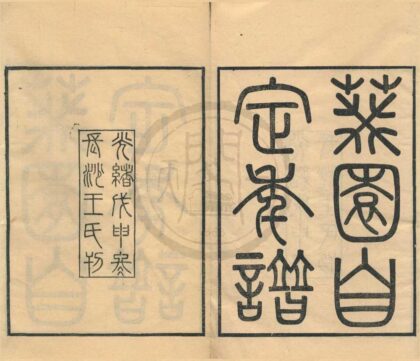 葵園自
定年譜
光緒戊申冬
長沙王氏刊